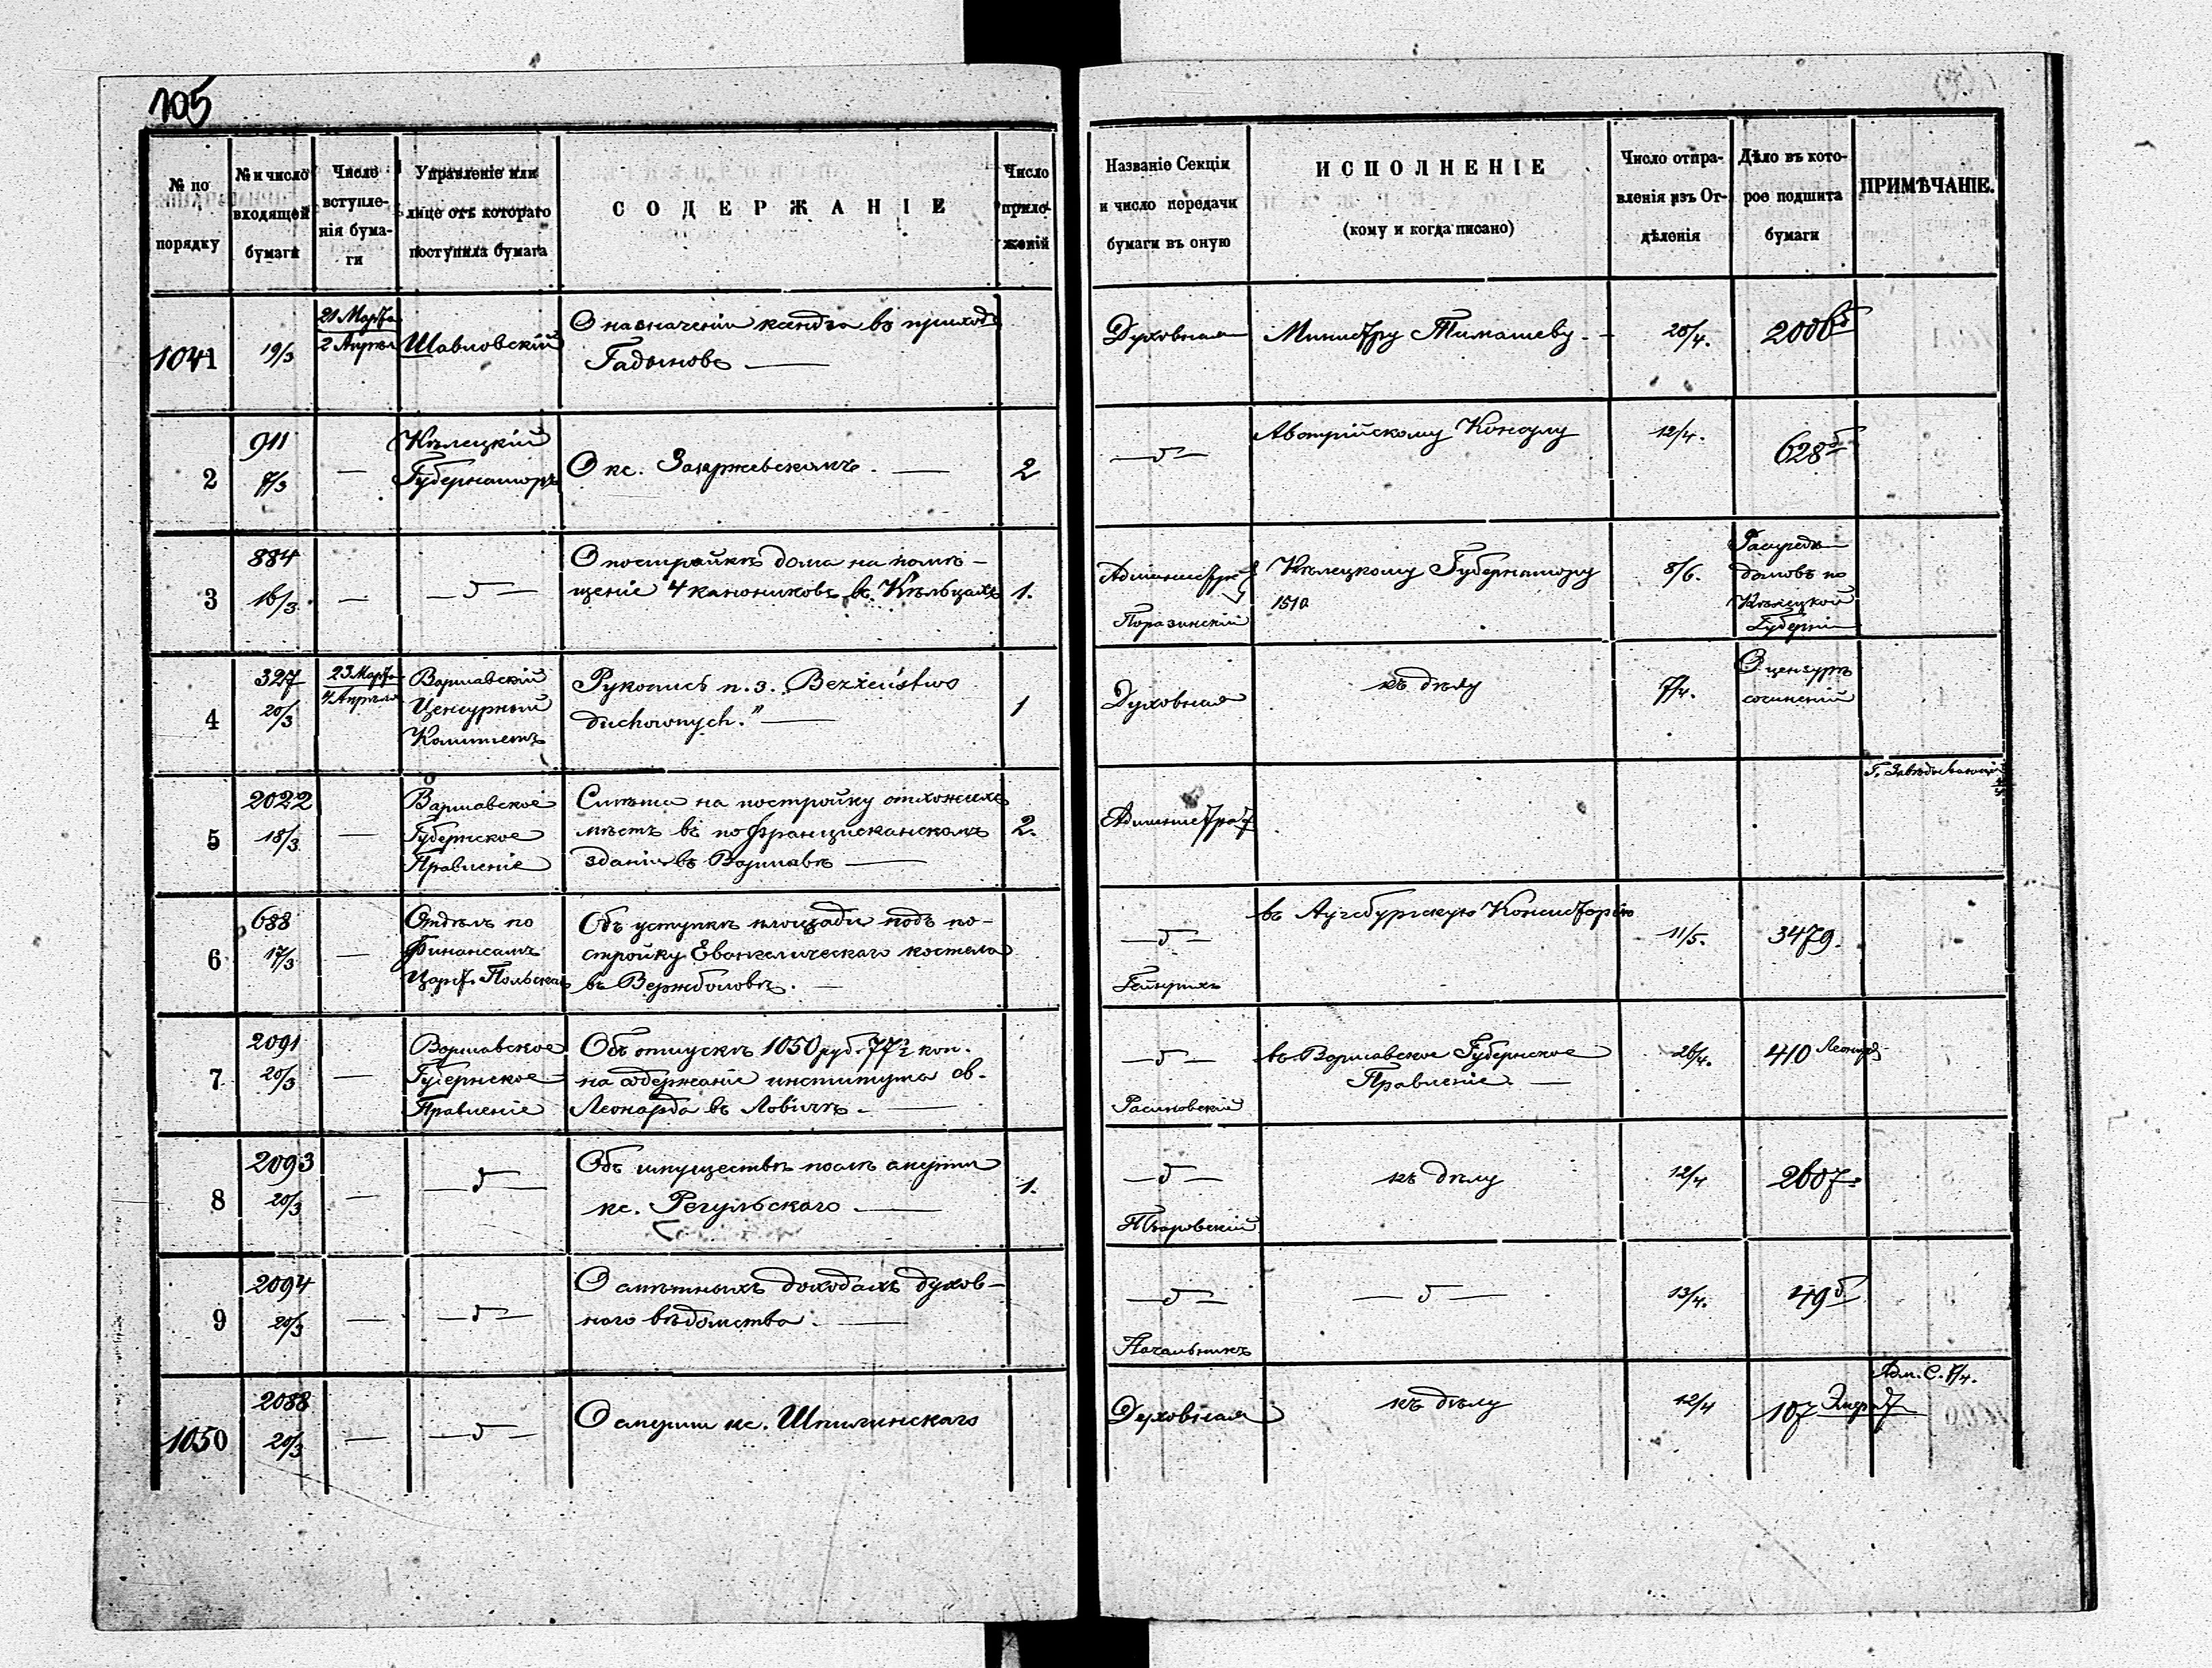 105
№ по порядку
№ и число входящей бумаги
Число вступленія бумаги
Управленіе или лице отъ котораго поступила бумага
СОДЕРЖАНІЕ
Число приложеній
Названіе Секціи и число передачи бумаги въ оную
ИСПОЛНЕНІЕ
(кому и когда писано)
Число отправленія изъ Отдѣленія
Дѣло въ которое подшита бумаги
ПРИМѢЧАНІЕ.
1041
19/3
21 Марта
2 Апрѣля
Шавловскій
О назначеніи ксендза въ приходъ
Гадыновъ —
Духовная
Министру Тимашеву. —
20/4.
200б
2
911
7/3
—
Кѣлецкій
Губернаторъ
О кс. Заіржевскомъ. —
2
— 5 —
Австрійскому Консулу
12/4.
628 б
3
884
16/3.
—
— 5 —
О постройкѣ дома на помѣ-
щеніе 4 канониковъ въ Кѣльцахъ
1.
Поразинскій
Кѣлецкому Губернатору
1510
8/6.
домовъ по
Кѣлецкой
Губерніи
4
327
20/3
23 Марта
4 Апрѣля
Варшавскій
Цензурный
Комитетъ
Рукопись п. з. „Bezżeństwo
duchownych." —
1
Духовная
къ дѣлу
7/4.
О цензурѣ
сочиненій
5
2022
18/3
—
Варшавское
Губернское
Правленіе
Смѣта на постройку отхожихъ
мѣстъ въ по Францисканскомъ
зданіи въ Варшавѣ —
2.
Администрат
Г. Завѣдывающій
6
688
17/3
—
Отдѣлъ по
Финансамъ
Царст. Польскаго
Объ уступкѣ площади подъ по-
стройку Евангелическаго костела
въ Вержболовѣ. —
— 5 —
Гейнрихъ
въ Аугсбургскую Консисторію
11/5.
3479.
7
2091
20/3
—
Варшавское
Губернское
Правленіе
Объ отпускѣ 1050 руб. 77½ коп.
на содержаніе института св.
Леонарда въ Ловичѣ. —
— 5 —
въ Варшавское Губернское
Правленіе. —
26/4.
410
8
2093
20/3
—
— 5 —
Объ имуществѣ послѣ смерти
кс. Регульскаго. —
1.
— 5 —
къ дѣлу
12/4
2607.
9
2094
20/3
—
— 5 —
О смѣтныхъ доходахъ духов-
наго вѣдомства. —
— 5 —
Начальникъ
— 5 —
13/4.
49 б
1050
2088
20/3
—
— 5 —
О смерти кс. Шпилинскаго
Духовная
къ дѣлу
12/4
107
Адм. С. 8/4.